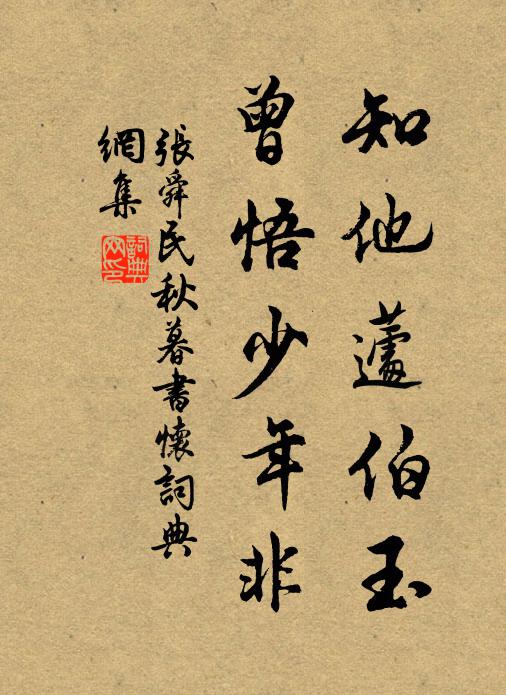 知他蘧伯玉
曾悟少年非
張舜民秋暮書懷詞典
網集
詞典
网印